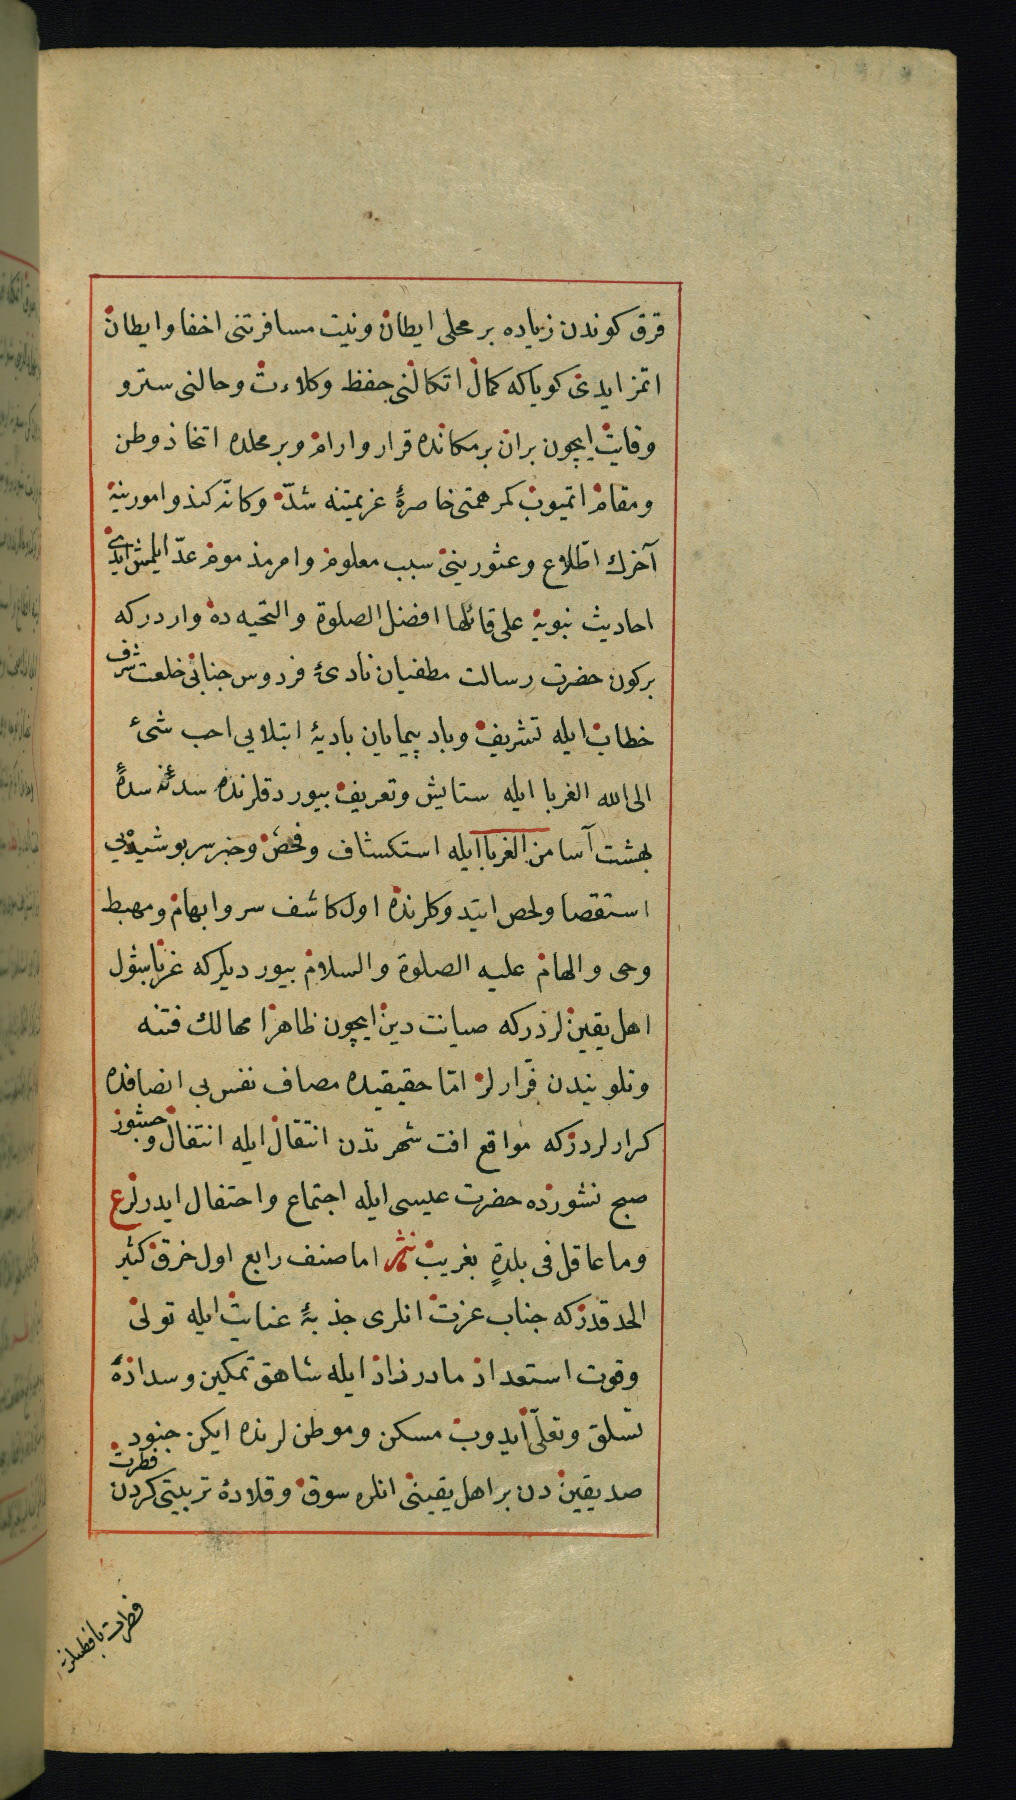 قرق كوندن زياده بر محلى ايطان ونيت مسافرتنى اخفا وابطان
اتمز ايدى كوياكه كمال اتكالنى حفظ وكلاءت وحالنى سترو
وقايت ايچون بران برمكانده قرار وارام وبر محلده اتخاذ وطن
ومقام اتميوب كمر همتى خاصرۀ عزيمتنه شدّ وكانّه كنذو امورينۀ
آخرك اطّلاع وعثورينى سبب معلوم وامر مذموم عدّ ايلمش ايدى
احاديث نبويۀ على قائلها افضل الصلوة والتحيه ده وارد دركه
بركون حضرت رسالت مطفيان نادىٔ فردوس جنانى خلعت شرف
خطاب ايله تشريف وباد پيمايان باديۀ ابتلايى احب شىء
الى الله الغربا ايله ستايش وتعريف بيوردقلرنده سدۀ سدۀ
بهشت آسا من الغربا ايله استكشاف وفحص وخبر سر بوشيده يى
استقصا ولحص ايتدوكلرنده اول كاشف سر وابهام ومهبط
وحى والهام عليه الصلوة والسلام بيورديلركه غربا شول
اهل يقين لردركه صيانت دين ايچون ظاهرا مهالك فتنه
وتلويندن فرارلر امّا حقيقيده مصاف نفس بى انصافده
كرارلردركه مواقع افت شهرتدن انتقال ايله انتفال و
صبح نشورده حضرت عيسى ايله اجتماع واحتفال ايدرلر ع
وما عاقل فى بلدةٍ بغريب نثر اما صنف رابع اول خرق كثير
الحدقدركه جناب عزت انلرى جذبۀ عنايت ايله تولى
وقوت استعداد مادرزاد ايله شاهق تمكين وسداده
تسلق وتعلّى ايدوب مسكن وموطن لرنده ايكن جنود
صديقين دن براهل يقينى انلره سوق وقلادۀ تربيتى كردن فطرت